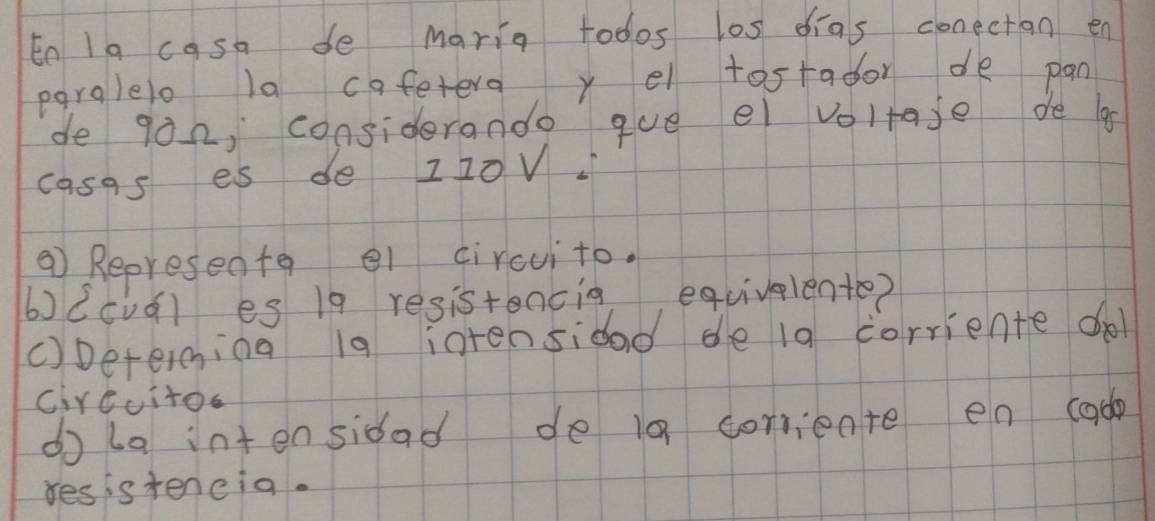 En la casa de María todos los días conectan en
paralelo la cafetera y el tostador de pan
de 90Ω; considerando que el voltaje de las
casas es de 110V.
a) Representa el circuito.
b) ¿cuál es la resistencia equivalente?
c) Determina la intensidad de la corriente del
circuito.
d) La intensidad de la corriente en cada
resistencia.